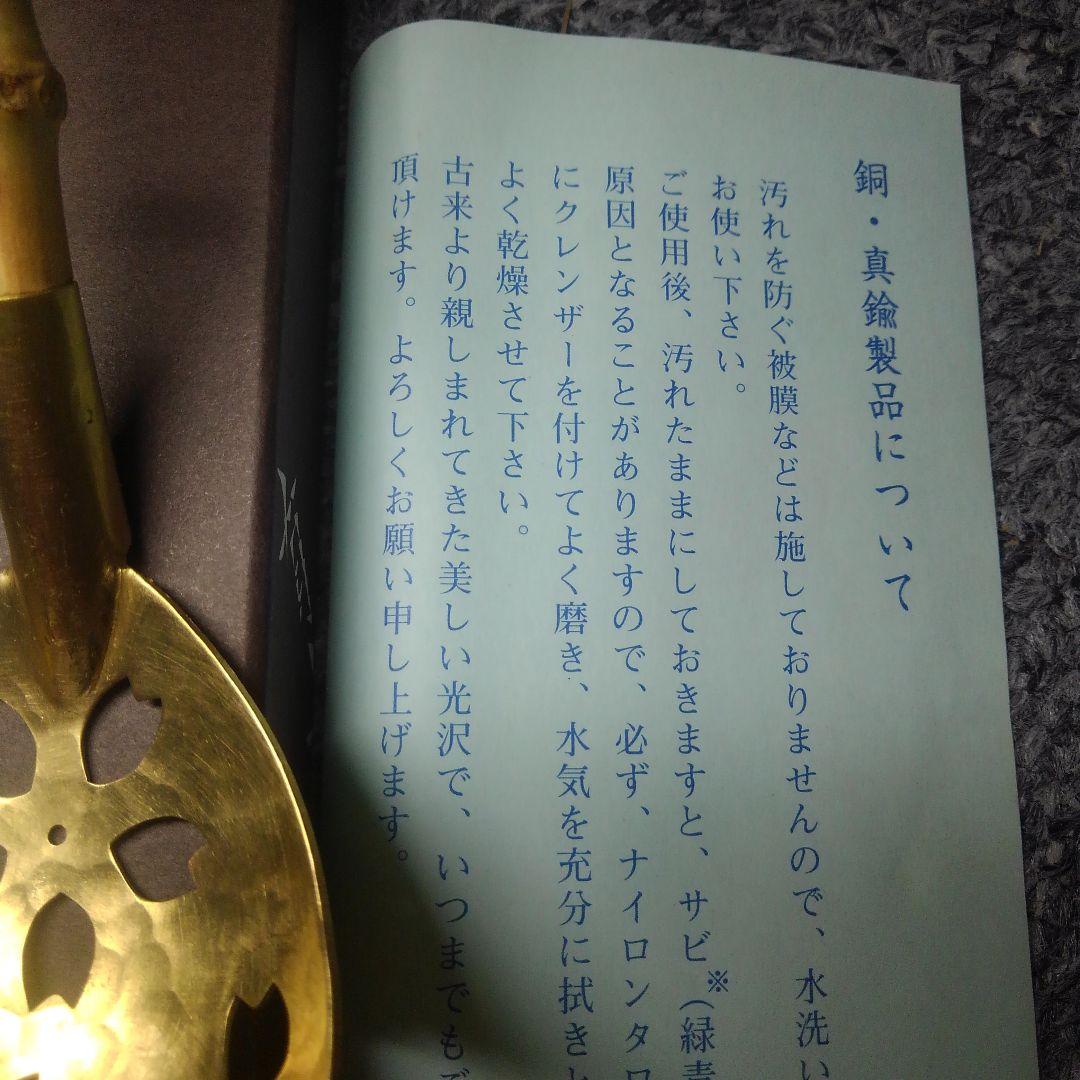 銅・真鍮製品について
汚れを防ぐ被膜などは施しておりませんので、水洗い
お使い下さい。
ご使用後、汚れたままにしておきますと、サビ※(緑青
原因となることがありますので、必ず、ナイロンタワ
にクレンザーを付けてよく磨き、水気を充分に拭きと
よく乾燥させて下さい。
古来より親しまれてきた美しい光沢で、いつまでもご
頂けます。よろしくお願い申し上げます。